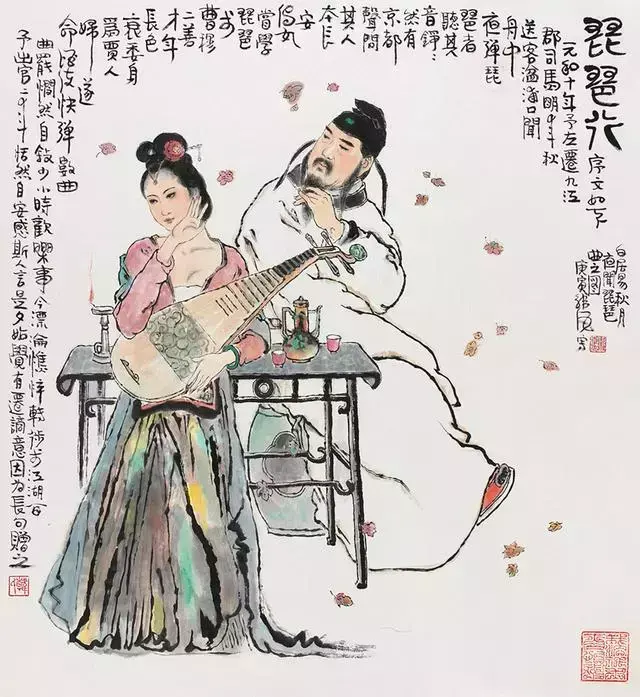 琵琶行 序文如下
元和十年予左遷九江
郡司馬明年秋
送客湓浦口聞
舟中
夜彈琵
琶者
聽其
音錚錚
然有
京都
聲問
其人
本長
安
倡女
嘗學
琵琶
於
曹穆
二善
才年
長色
衰委身
為賈人
婦遂
命酒使快彈數曲
曲罷憫然自敘少小時歡樂事今漂淪憔悴轉徙於江湖間
予出官二年恬然自安感斯人言是夕始覺有遷謫意因為長句贈之
白居易秋月
夜聞琵琶
曲之圖
庚寅 寫